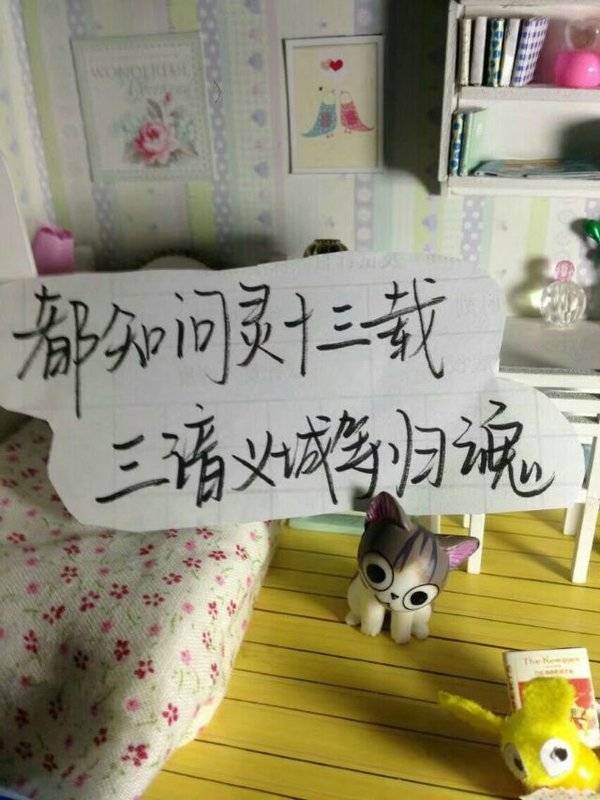 WONDERFUL
都知问灵十三载
三谙义城等归魂
The Kewpies